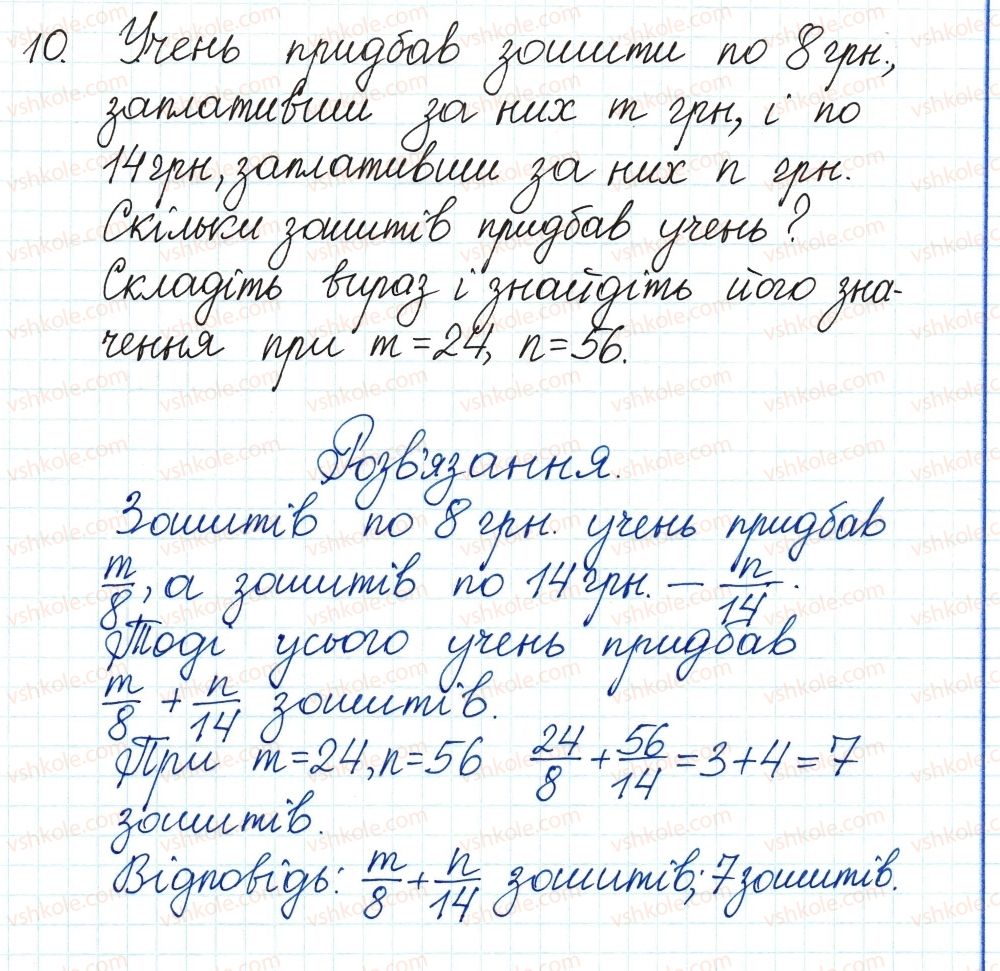 10. Учень придбав зошити по 8 грн.,
заплативши за них m грн, і по
14 грн, заплативши за них n грн.
Скільки зошитів придбав учень?
Складіть вираз і знайдіть його зна-
чення при m = 24, n = 56.
Розв'язання.
Зошитів по 8 грн. учень придбав
m/8, а зошитів по 14 грн. – n/14.
Тоді усього учень придбав
m/8 + n/14 зошитів.
При m = 24, n = 56 24/8 + 56/14 = 3 + 4 = 7
зошитів.
Відповідь: m/8 + n/14 зошитів; 7 зошитів.
vshkole.com